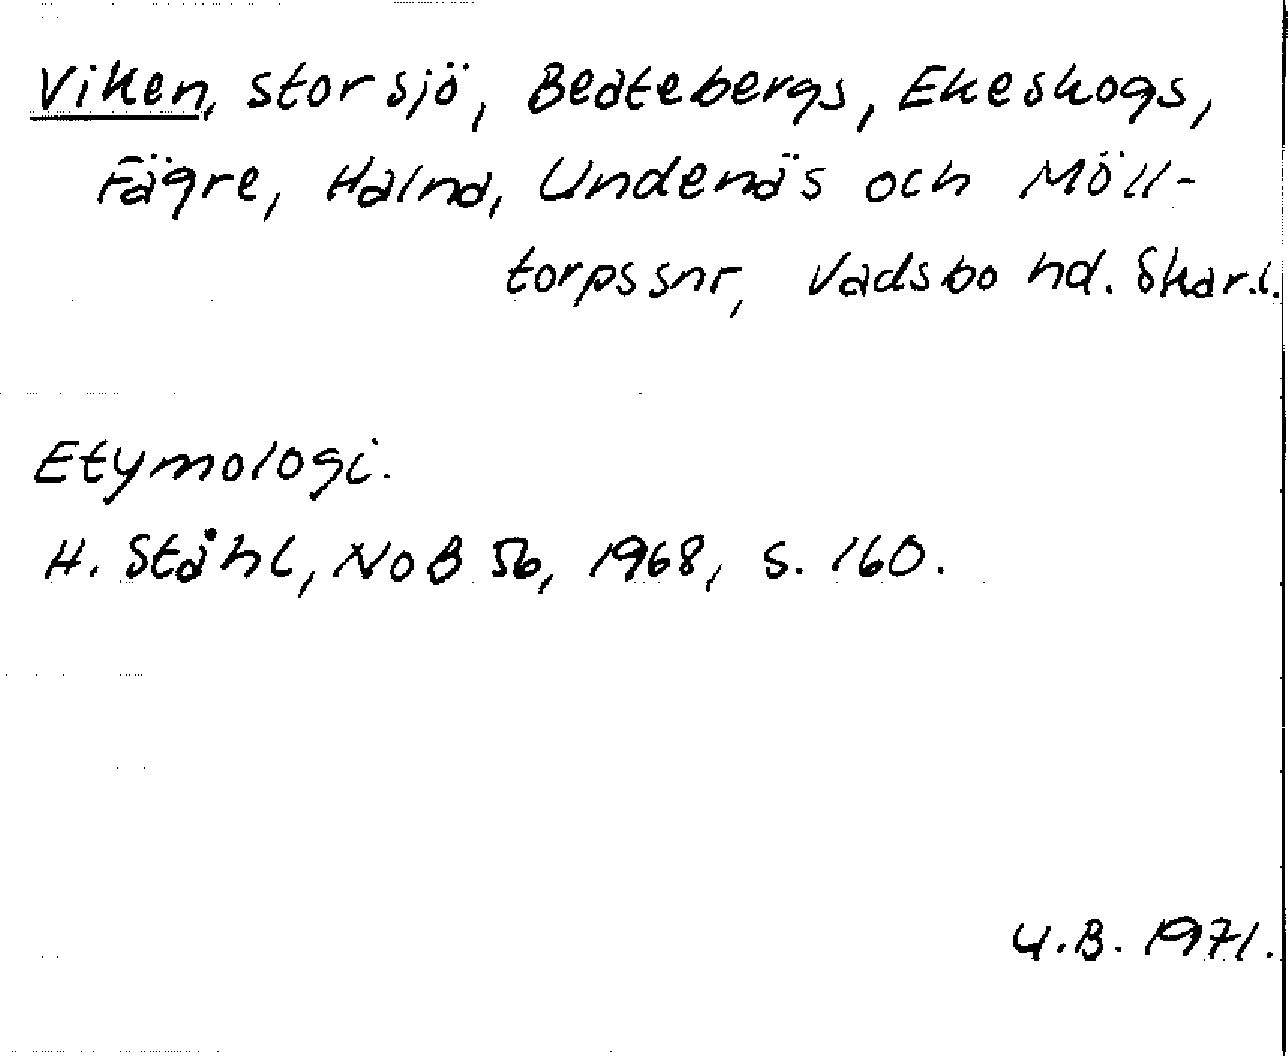 Viken, stor sjö, Beatebergs, Ekeskogs,
Fägre, Halna, Undenäs och Möll-
torps snr, Vadsbo hd. Skar.l.
Etymologi.
H. Ståhl, NoB 56, 1968, s. 160.
U.B. 1971.